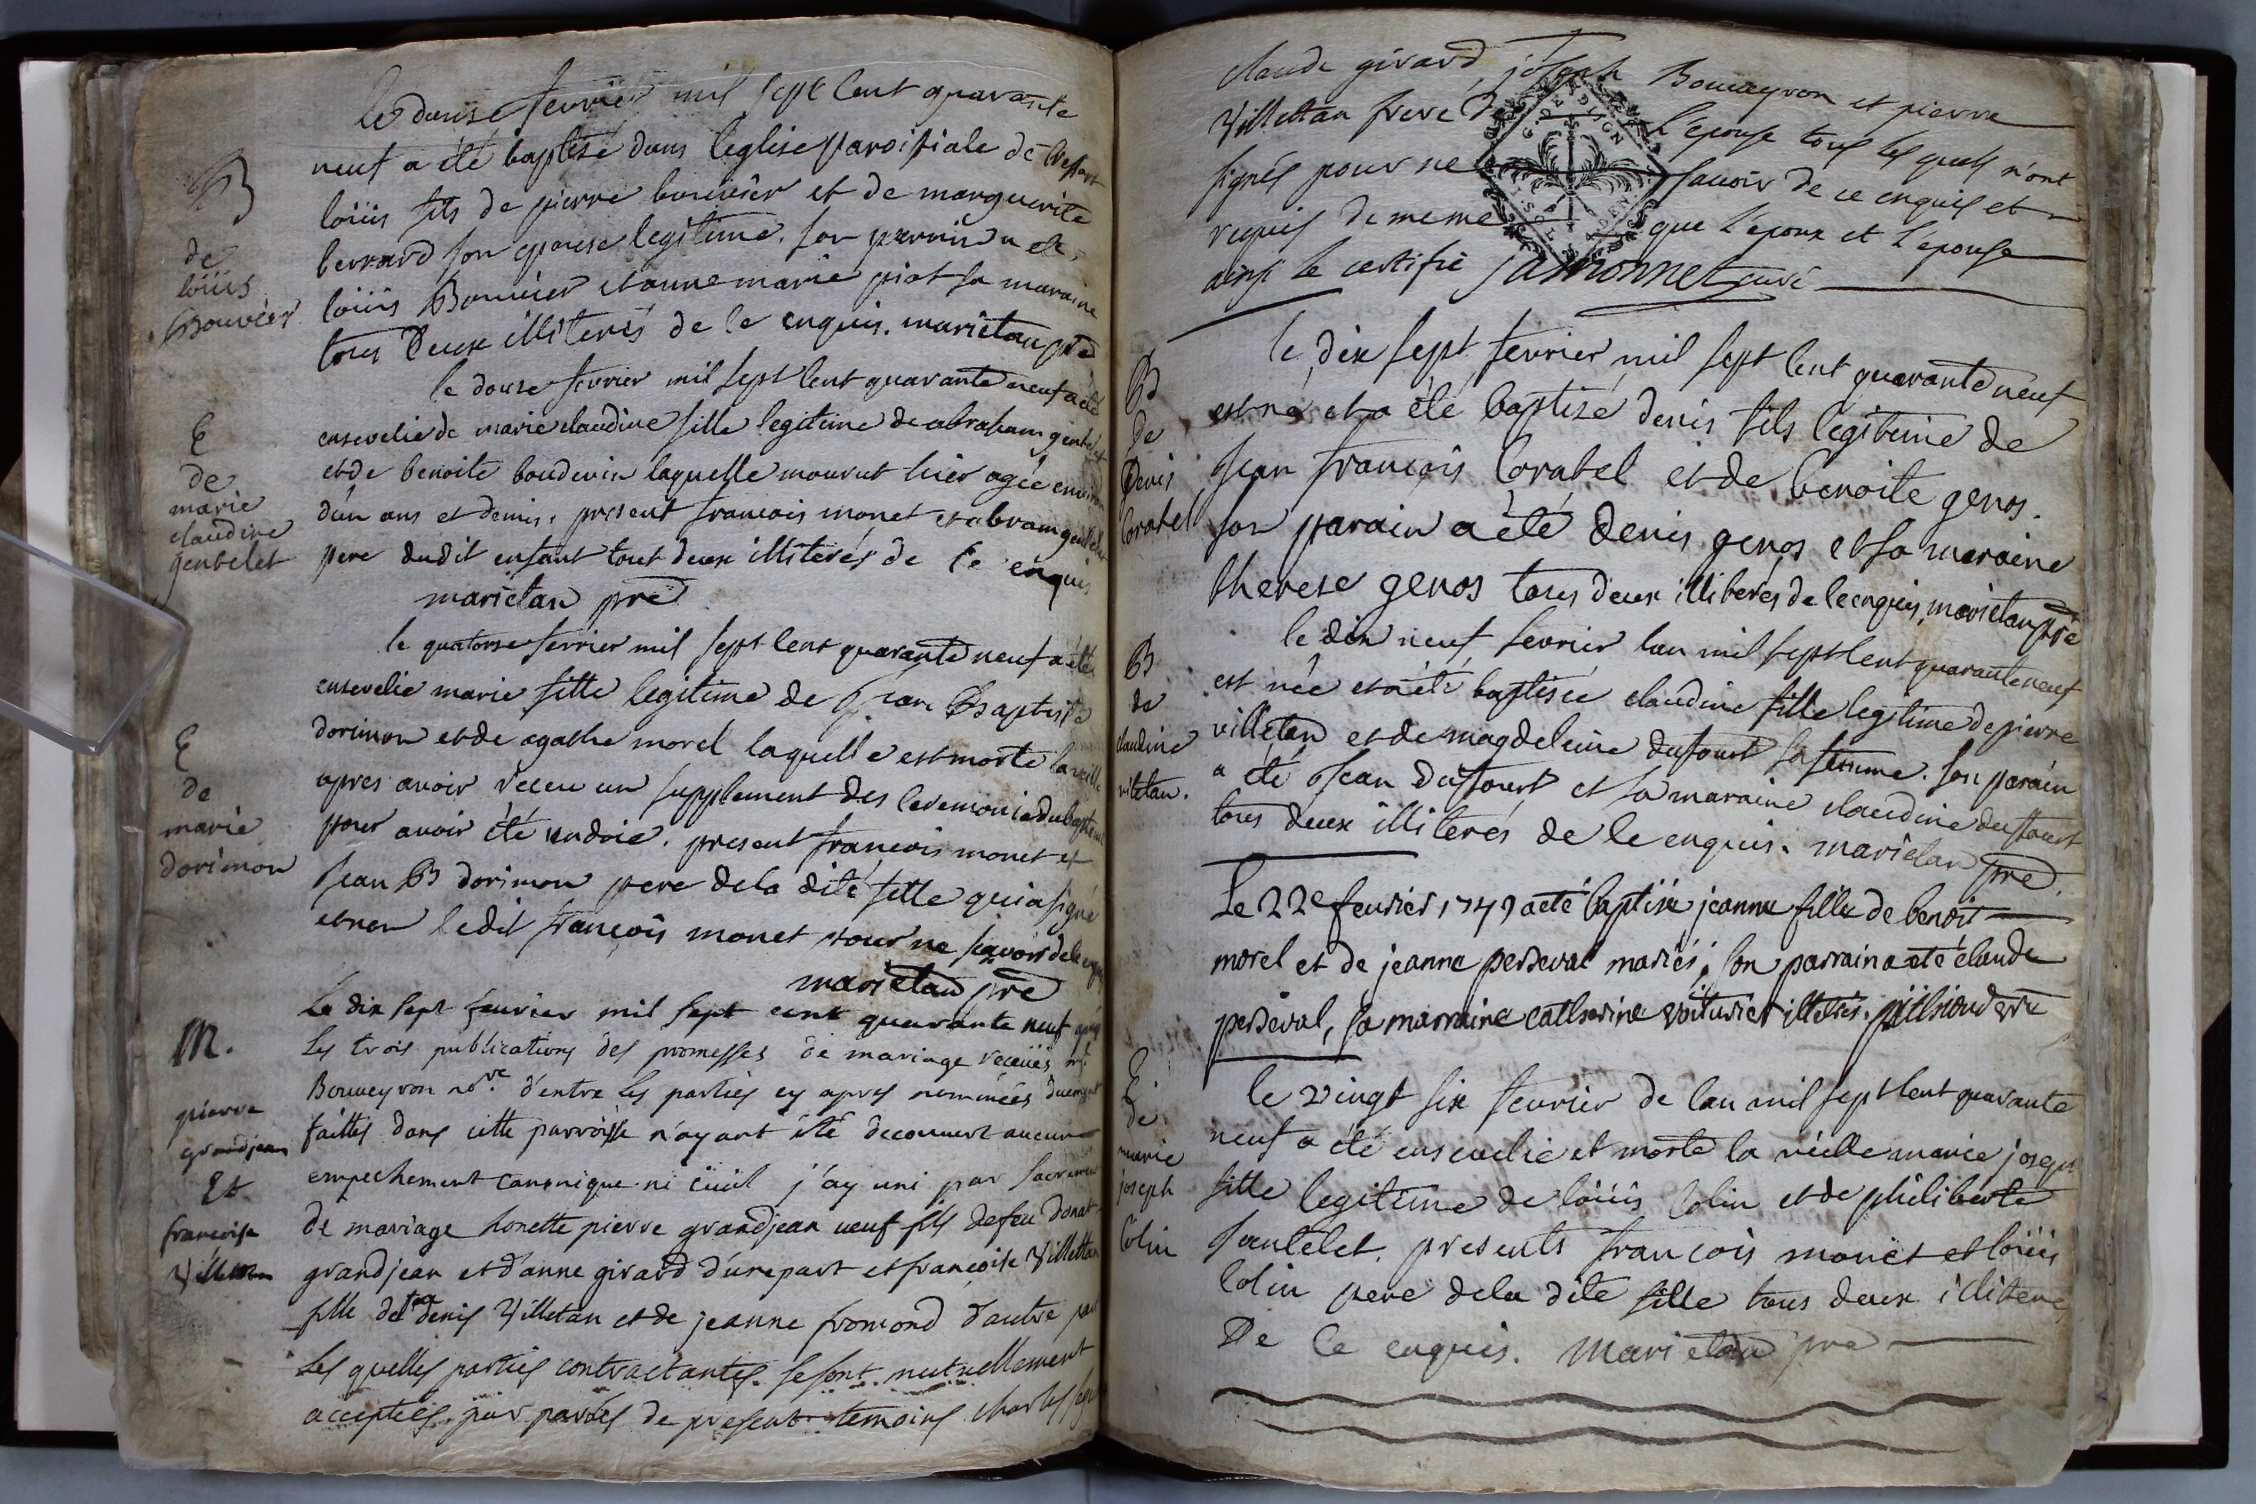 le douse fevrier mil sept Cent quarante
neuf a été baptisé dans l'eglise paroissiale de
B
de
loüis
Bouvier
loüis fils de pierre bouvier et de marguerite
berrard son epouse legitime. son parrain a été
loüis Bouvier et anne marie piot sa maraine
tous Deux illiterés de ce enquis. marietan pre
le douse fevrier mil sept Cent quarante neuf a été
E
de
marie
claudine
gentelet
ensevelie de marie claudine fille legitime de abraham gentelet
et de benoite boudevin laquelle mourut hier agée environ
d'un ans et demis. present francois monet et abram gentelet
pere dudit enfant tout deux illiterés de ce enquis
marietan pre
le quatorse fevrier mil sept Cent quarante neuf a été
E
de
marie
dorimon
ensevelie marie fille legitime de Jean Baptiste
dorimon et de agathe morel laquelle est morte la veille
apres avoir receu un supplement des Ceremonie du bapteme
pour avoir été undoié. present francois monet et
Jean B dorimon pere de la dite fille qui a signé
et non ledit françois monet pour ne sçavoir de ce enquis
marietan pre
M.
pierre
grandjean
Et
francoise
Villettan
Le dix sept feurier mil sept cent quarante neuf après
Les trois publications des promesses de mariage receües mt
Bouveyron nore. d'entre les parties cy apres nommées duement
faittes dans cette parroisse n'ayant été decouvert aucun
empechement canonique ni ciuil j'ay uni par sacrement
de mariage honette pierre grandjean ueuf fils de feu Donat
grandjean et d'anne girard d'une part et francoise Villettan
fille de feu denis Villetan et de jeanne fromond d'autre part
Les quelles parties contractantes se sont mutuellement
acceptées par paroles de present temoins charles
claude girard, joseph Bouveyron et pierre
Villettan frere de L'epouse tous les quels n'ont
signés pour ne sauoir de ce enquis et
requis de meme que l'epoux et l'epouse
ainsi le certifie jantionnet curé
B
de
Denis
Coratel
le dix sept fevrier mil sept Cent quarante neuf
est né et a été baptisé denis fils legitime de
Jean françois Coratel et de benoite genos.
son parain a été denis genos et sa maraine
therese genos tous deux illiterés de ce enquis, marietan pre
B
de
claudine
viletan.
le dix neuf fevrier lan mil sept Cent quarante neuf
est née et a été baptisée claudine fille legitime de pierre
villetan et de magdeleine dufourt sa femme. son parain
a été Jean dufourt et sa maraine claudine dufourt
tous deux illiterés de ce enquis. marietan pre.
Le 22e feurier 1749 a eté baptisée jeanne fille de benoit
morel et de jeanne perseval mariés; son parrain a eté claude
perseval, sa marraine catherine voiturier illeterés.
E
de
marie
joseph
Colin
le vingt six feurier de lan mil sept Cent quarante
neuf a été ensevelie et morte la veille marie joseph
fille legitime de loüis Colin et de philiberte
Jantelet. presents francois monet et loüis
Colin pere de la dite fille tous deux illiterés
De Ce enquis. Marietan pre